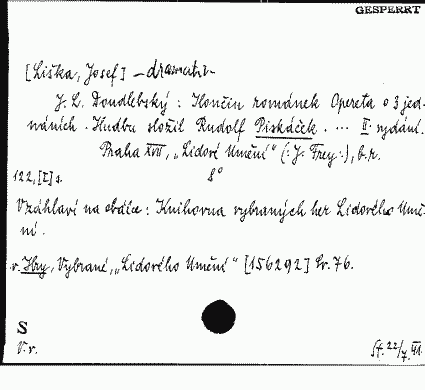 GESPERRT
[Liška, Josef] – dramatir-
J. L. Doudlebský : Hončin románek Opereta o 3 jed-
náních. Hudbu složil Rudolf Piskáček. ... II. vydání.
Praha XVII, „Lidové Umění" (: J. Frey :), b.r.
122, [I] s. 8°
V záhlaví na obálce: Knihovna vybraných her Lidového Umě-
ní.
v. Hry, Vybrané, „Lidového Umění" [156292] Sv. 76.
S
V. r.
22/7. VI.